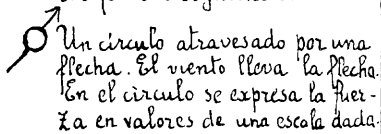 Un círculo atravesado por una
flecha. El viento lleva la flecha.
En el círculo se expresa la fuer-
za en valores de una escala dada.